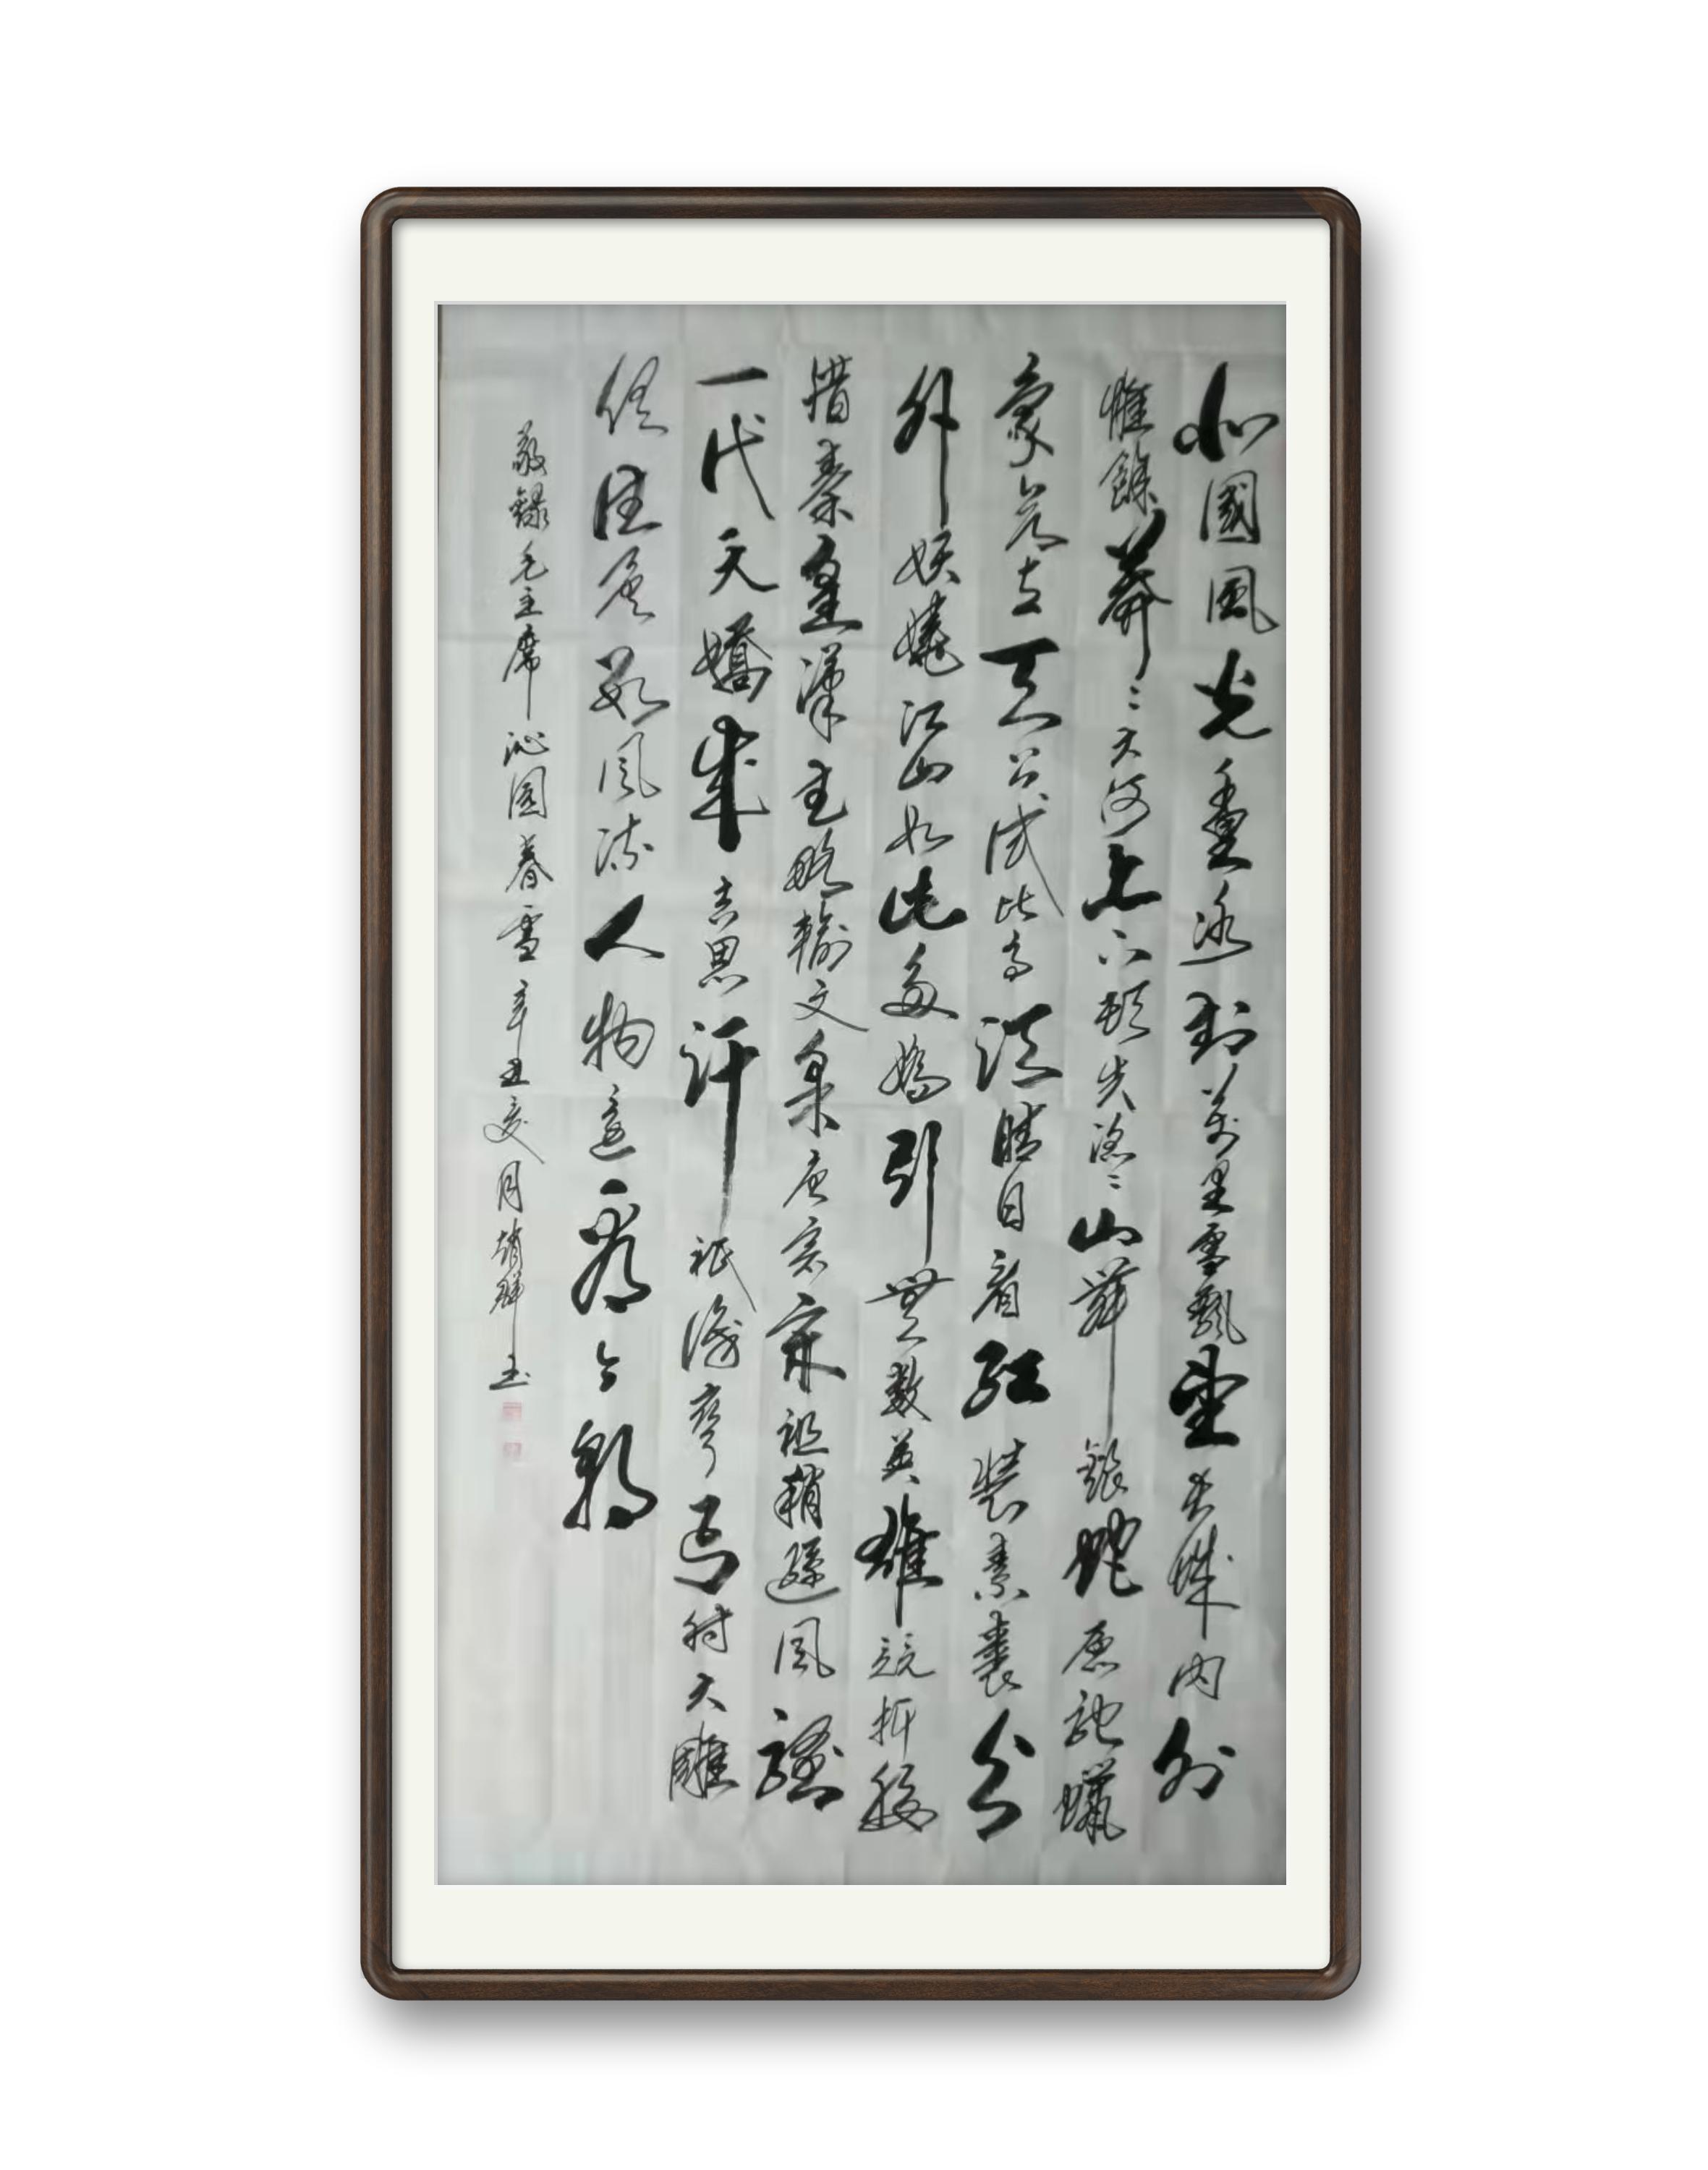 北國風光千里冰封萬里雪飄望長城内外
惟餘莽〻大河上下頓失滔〻山舞銀蛇原馳蠟
象欲与天公試比高須晴日看紅裝素裹分
外妖嬈江山如此多嬌引無數英雄競折腰
惜秦皇漢武略輸文采唐宗宋祖稍遜風騷
一代天嬌成吉思汗祇識彎弓射大雕
俱往矣數風流人物還看今朝
敬録毛主席沁園春雪辛丑夏月趙群